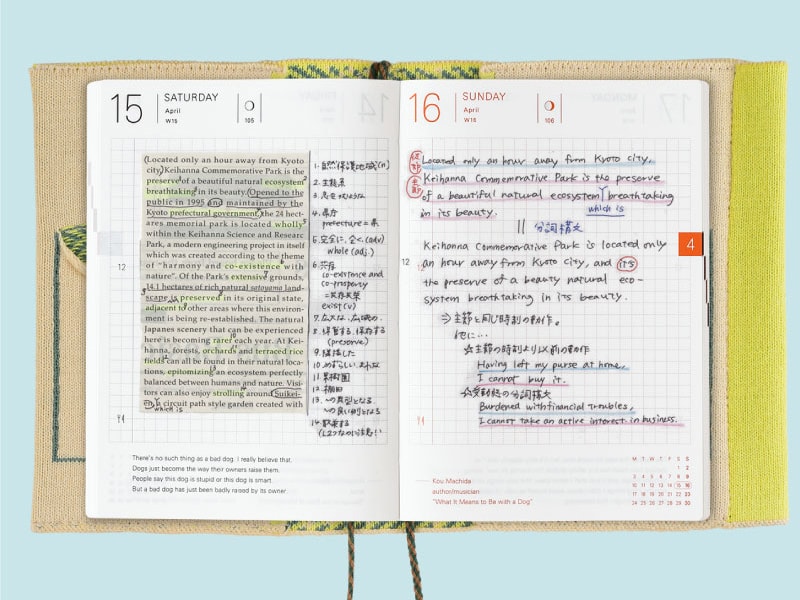 15
SATURDAY
April
W15
105
(Located only an hour away from Kyoto
city) Keihanna Commemorative Park is the
preserve of a beautiful natural ecosystem
breathtaking in its beauty. Opened to the
public in 1995 and maintained by the
Kyoto prefectural government, the 24 hect-
ares memorial park is located wholly
within the Keihanna Science and Researc
Park, a modern engineering project in itself
which was created according to the theme
of "harmony and co-existence with
nature". Of the Park's extensive grounds,
14.1 hectares of rich natural satoyama land-
scape is preserved in its original state,
adjacent to other areas where this environ-
ment is being re-established. The natural
Japanes scenery that can be experienced
here is becoming rarer each year. At Kei-
hanna, forests, orchards and terraced rice
fields can all be found in their natural loca-
tions, epitomizing an ecosystem perfectly
balanced between humans and nature. Visi-
tors can also enjoy strolling around Suikei-
en, a circuit path style garden created with
which is
1. 自然保護地域(n)
2. 生態系
3. 息をのむような
4. 県庁
prefecture = 県
5. 完全に、全く (adv)
whole (adj.)
6. 共存
co-existence and
co-prosperity
=共存共栄
exist (v)
7. 広大な、広域の
8. 保管する、保存する
(preserve)
9. 隣接した
10. めずらしい、まれな
11. 果樹園
12. 棚田
13. 〜の典型となる
〜の良い例となる
14.
12
There's no such thing as a bad dog. I really believe that.
Dogs just become the way their owners raise them.
People say this dog is stupid or this dog is smart.
But a bad dog has just been badly raised by its owner
16
SUNDAY
April
W15
106
Located only an hour away from Kyoto city,
Keihanna Commemorative Park is the preserve
of a beautiful natural ecosystem breathtaking
in its beauty.
which is
分詞構文
Keihanna Commemorative Park is located only
an hour away from Kyoto city, and it's
the preserve of a beauty natural eco-
system breathtaking in its beauty.
⇒主節と同じ時制の動作。
他に…
☆主節の時制より以前の動作
Having left my purse at home,
I cannot buy it.
☆受動態の分詞構文
Burdened with financial troubles,
I cannot take an active interest in business.
12
4
Kou Machida
author/musician
"What It Means to Be with a Dog"
M T W T F S S
1 2
3 4 5 6 7 8 9
10 11 12 13 14 15 16
17 18 19 20 21 22 23
24 25 26 27 28 29 30